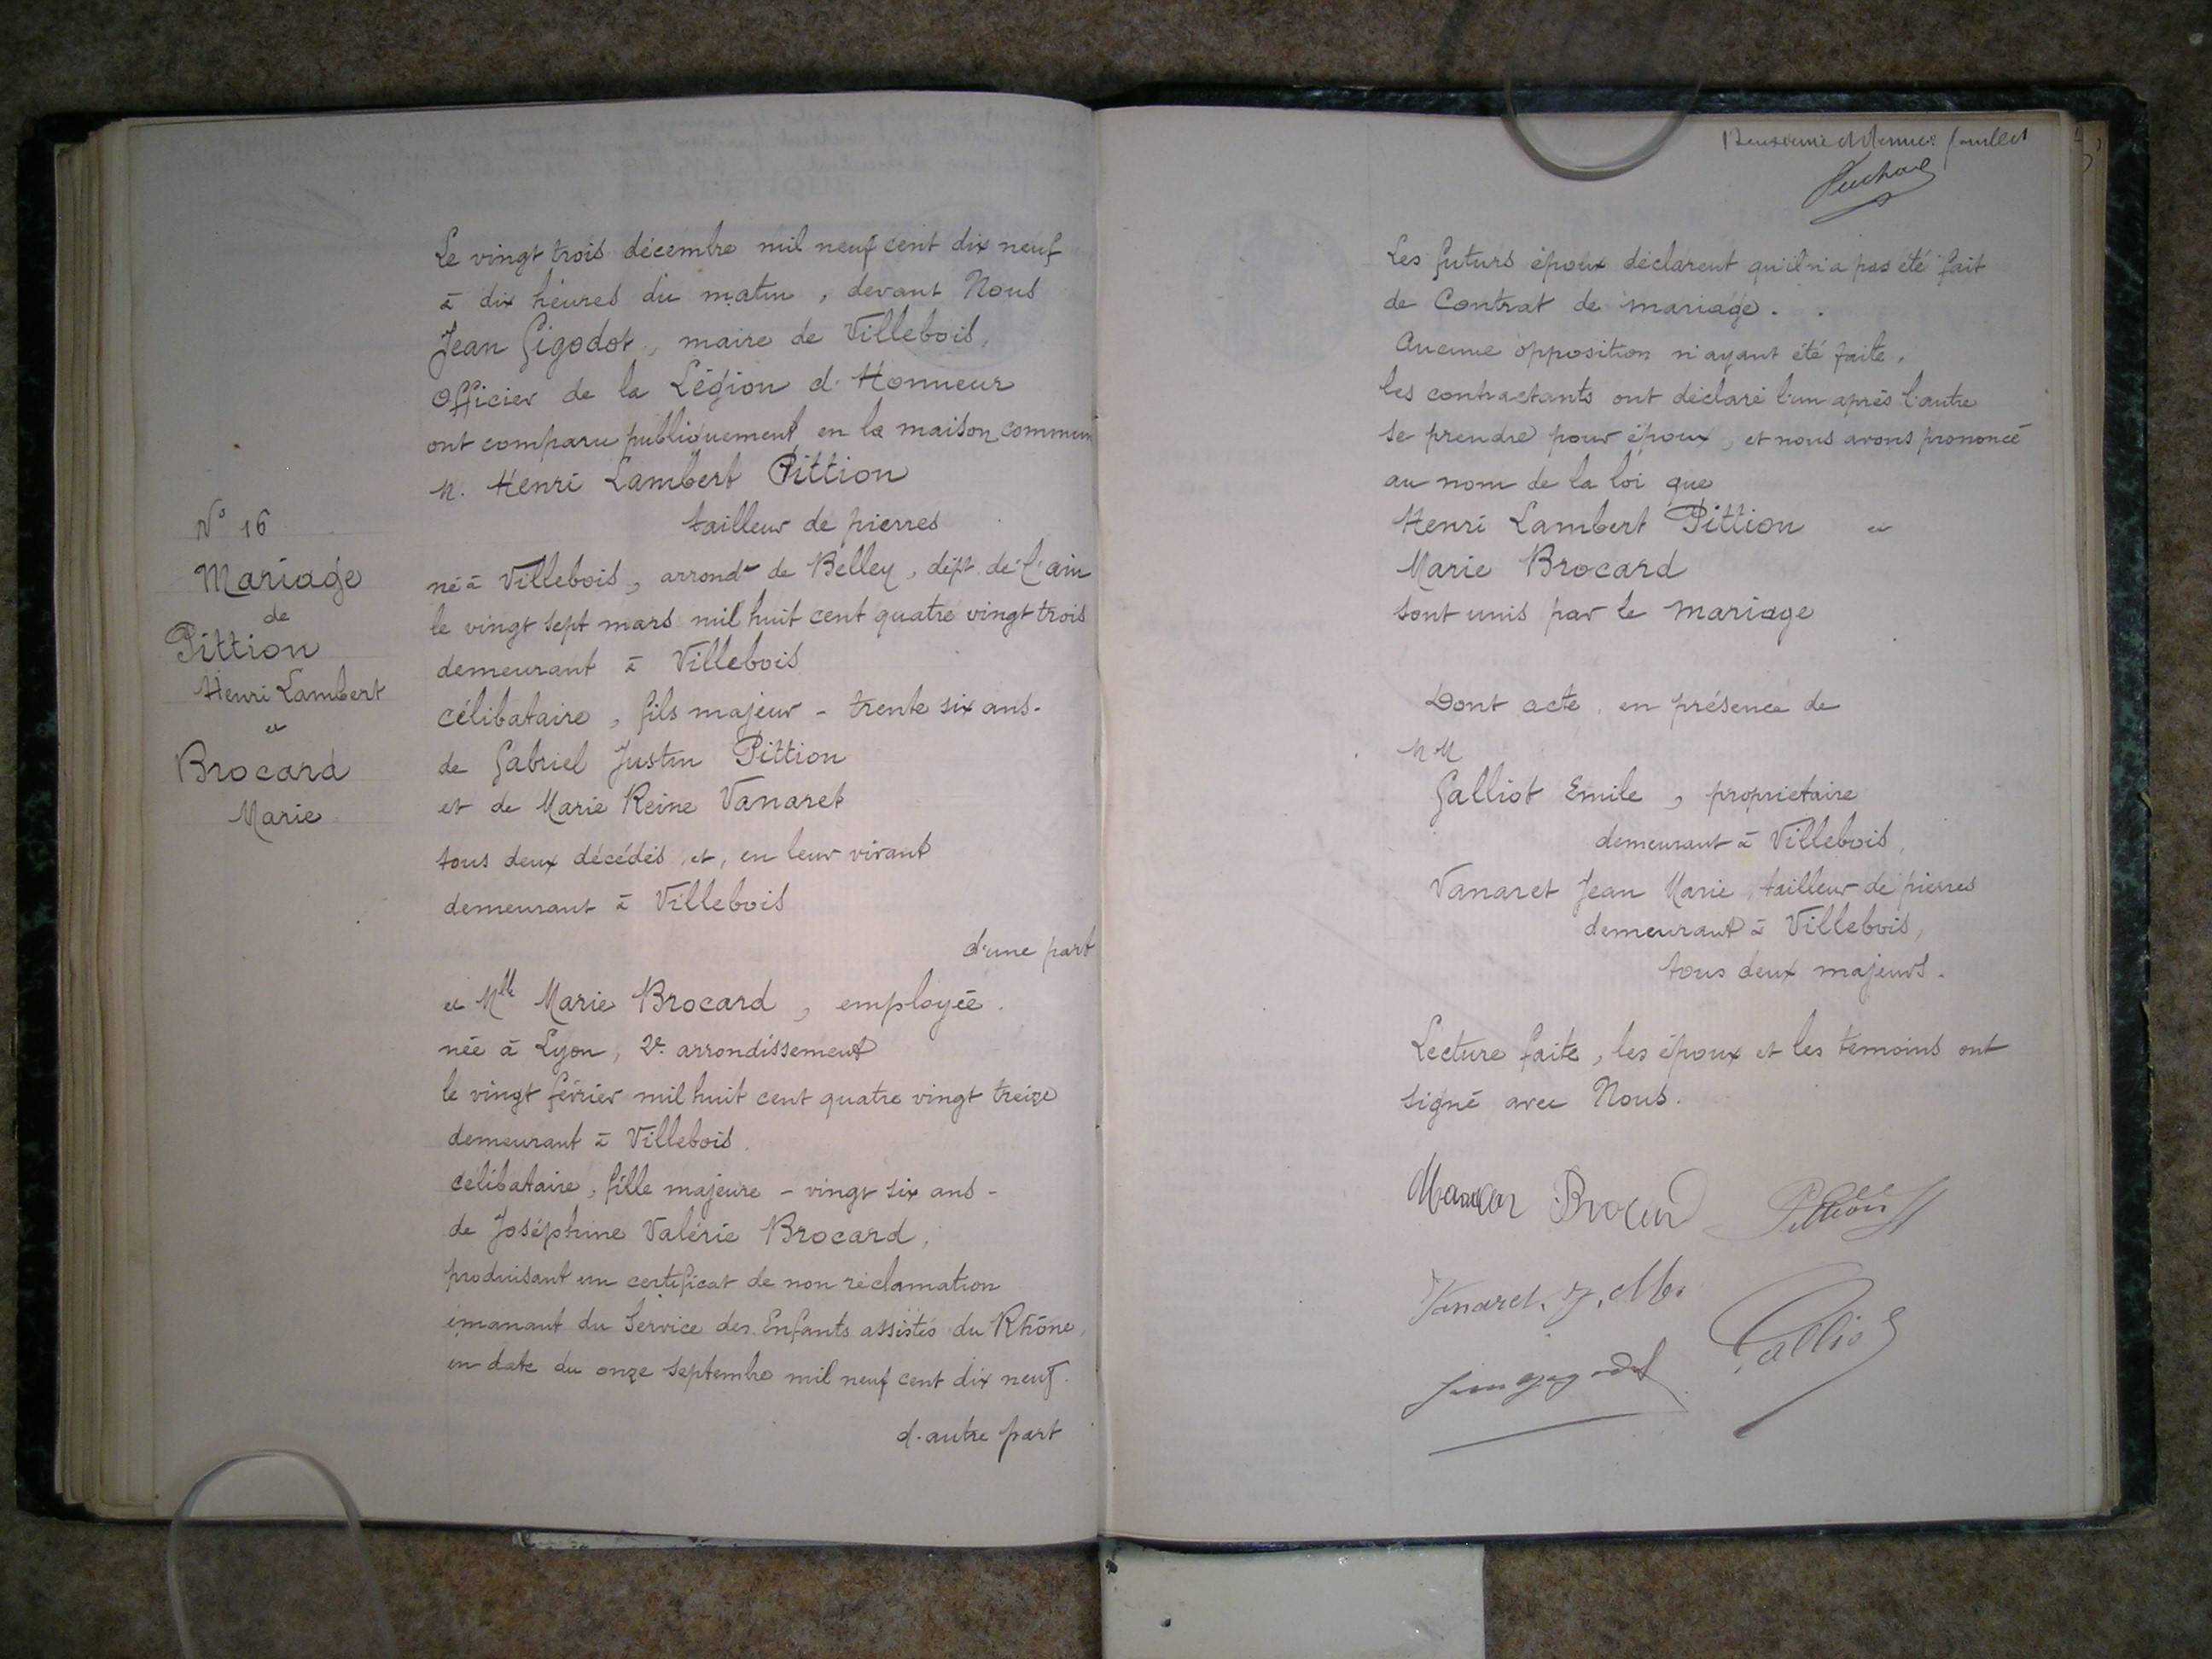 N° 16
Mariage
de
Pittion
Henri Lambert
et
Brocard
Marie
Le vingt trois décembre mil neuf cent dix neuf
à dix heures du matin, devant Nous
Jean Gigodot, maire de Villebois,
Officier de la Légion d'Honneur
ont comparu publiquement en la maison commun
M. Henri Lambert Pittion
tailleur de pierres
né à Villebois, arrondt de Belley, dépt de l'ain
le vingt sept mars mil huit cent quatre vingt trois
demeurant à Villebois
célibataire, fils majeur - trente six ans -
de Gabriel Justin Pittion
et de Marie Reine Vanaret
tous deux décédés, et, en leur vivant
demeurant à Villebois
d'une part
et Mlle Marie Brocard, employée.
née à Lyon, 2e arrondissement
le vingt février mil huit cent quatre vingt treize
demeurant à Villebois.
célibataire, fille majeure - vingt six ans -
de Joséphine Valérie Brocard,
produisant un certificat de non réclamation
émanant du Service des Enfants assistés du Rhône,
en date du onze septembre mil neuf cent dix neuf.
d'autre part
feuillet
Les futurs époux déclarent qu'il n'a pas été fait
de Contrat de mariage.
Aucune opposition n'ayant été faite,
les contractants ont déclaré l'un après l'autre
se prendre pour époux, et nous avons prononcé
au nom de la loi que
Henri Lambert Pittion et
Marie Brocard
sont unis par le mariage
Dont acte, en présence de
MM
Galliot Emile, propriétaire
demeurant à Villebois,
Vanaret Jean Marie, tailleur de pierres
demeurant à Villebois,
tous deux majeurs.
Lecture faite, les époux et les témoins ont
signé avec Nous.
Pittion
Vanaret. J. M.
Galliot
Jean Gigodot